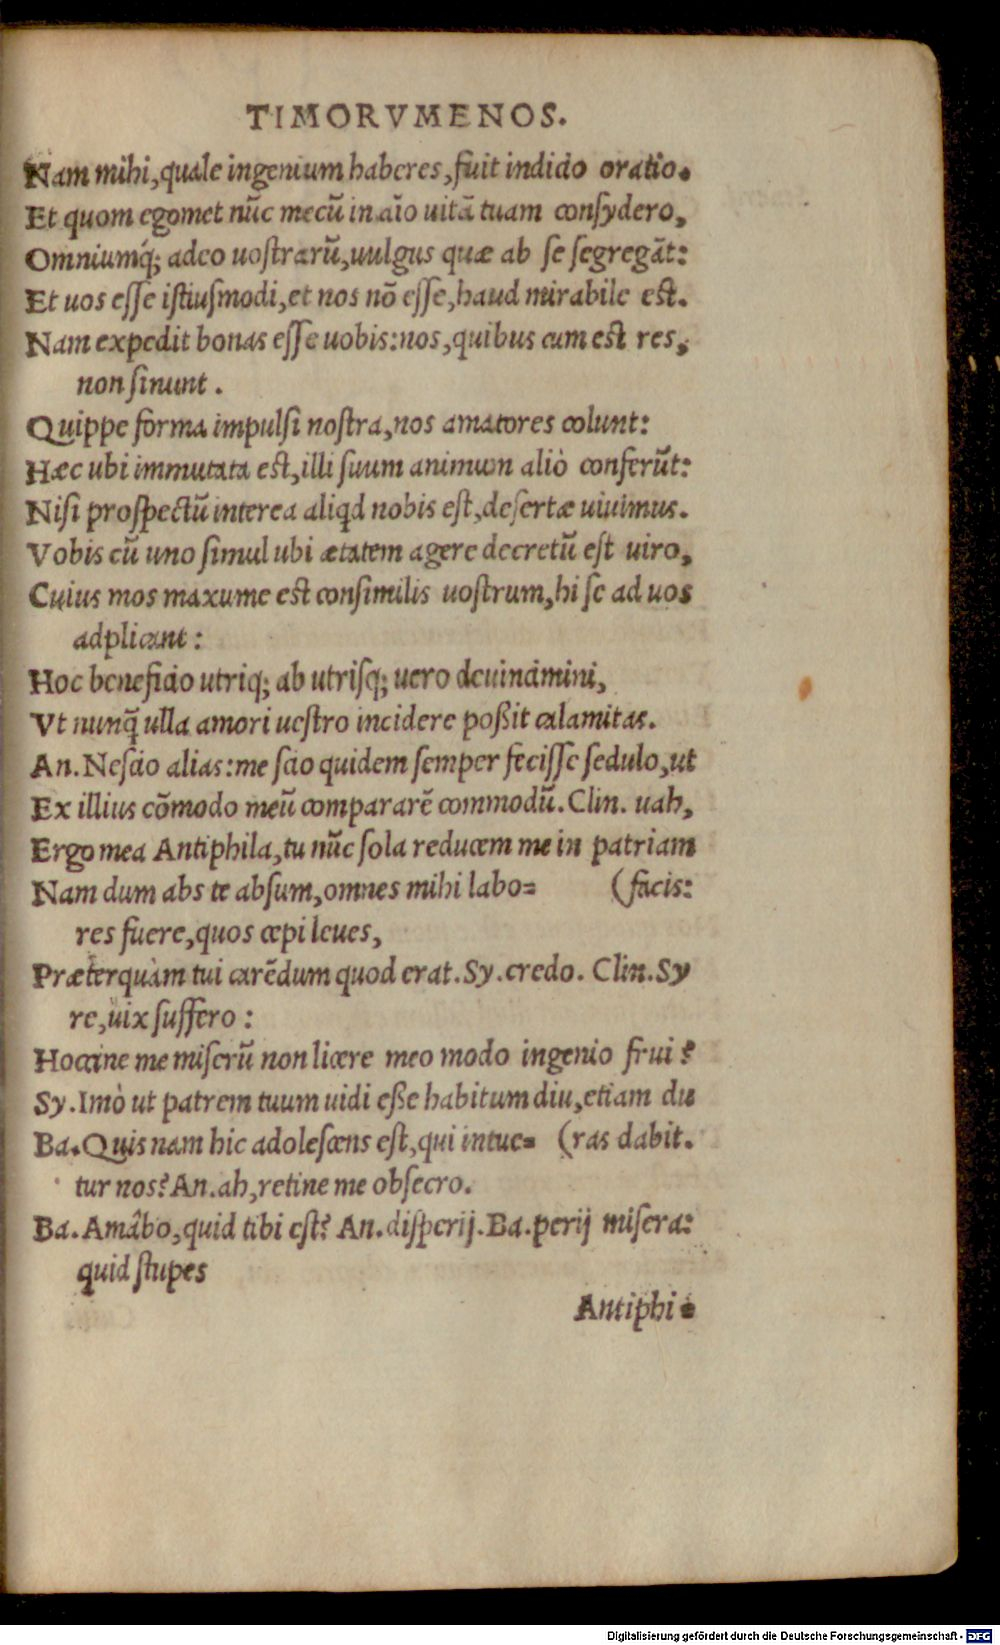 TIMORVMENOS.
Nam mihi, quale ingenium haberes, fuit indicio oratio.
Et quom egomet nũc mecũ in aĩo uitã tuam consydero,
Omniumq́; adeo uostrarũ, uulgus quæ ab se segregãt:
Et uos esse istiusmodi, et nos nõ esse, haud mirabile est.
Nam expedit bonas esse uobis: nos, quibus cum est res,
non sinunt.
Quippe forma impulsi nostra, nos amatores colunt:
Hæc ubi immutata est, illi suum animum aliò conferũt:
Nisi prospectũ interea aliqd nobis est, desertæ uiuimus.
Vobis cũ uno simul ubi ætatem agere decretũ est uiro,
Cuius mos maxume est consimilis uostrum, hi se ad uos
adplicant:
Hoc beneficio utriq; ab utrisq; uero deuincimini,
Vt nunq̃ ulla amori uestro incidere poßit calamitas.
An. Nescio alias: me scio quidem semper fecisse sedulo, ut
Ex illius cõmodo meũ compararẽ commodũ. Clin. uah,
Ergo mea Antiphila, tu nũc sola reducem me in patriam
Nam dum abs te absum, omnes mihi labo= (facis:
res fuere, quos cepi leues,
Præterquàm tui carẽdum quod erat. Sy. credo. Clin. Sy
re, uix suffero:
Hoccine me miserũ non licere meo modo ingenio frui?
Sy. Imò ut patrem tuum uidi eße habitum diu, etiam du
Ba. Quis nam hic adolescens est, qui intue= (ras dabit.
tur nos? An. ah, retine me obsecro.
Ba. Amâbo, quid tibi est? An. disperij. Ba. perij misera:
quid stupes
Antiphi=
Digitalisierung gefördert durch die Deutsche Forschungsgemeinschaft - DFG